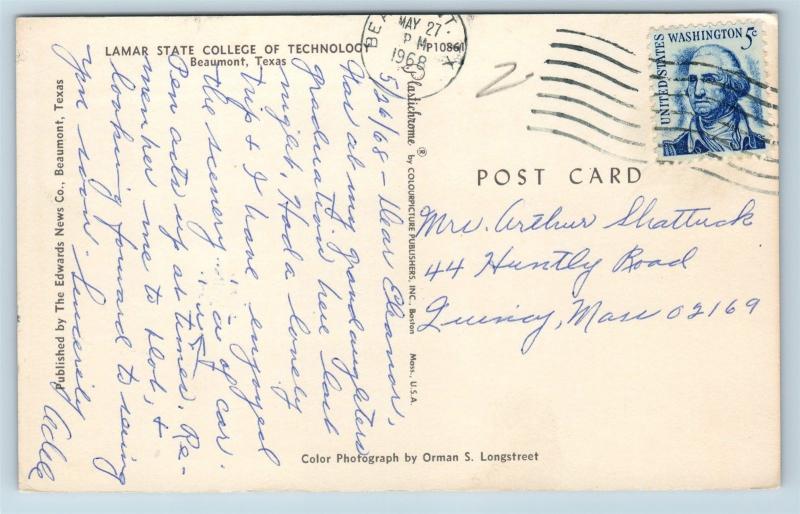 LAMAR STATE COLLEGE OF TECHNOLOGY
Beaumont, Texas
P10861
MAY 27
PM
1968
UNITED STATES
WASHINGTON 5c
2
POST CARD
Mrs. Arthur Shattuck
44 Huntly Road
Quincy, Mass 02169
5/26/68 - Dear Elanor,
Was at my grandaughters
graduation here last
night. Had a lovely
trip & I have enjoyed
the scenery in of car.
Pen acts up at times. Re-
member me to Hob, &
looking forward to seeing
you soon. Sincerely
Adele
Plastichrome ® by COLOURPICTURE PUBLISHERS, INC., Boston Mass., U.S.A.
Published by The Edwards News Co., Beaumont, Texas
Color Photograph by Orman S. Longstreet